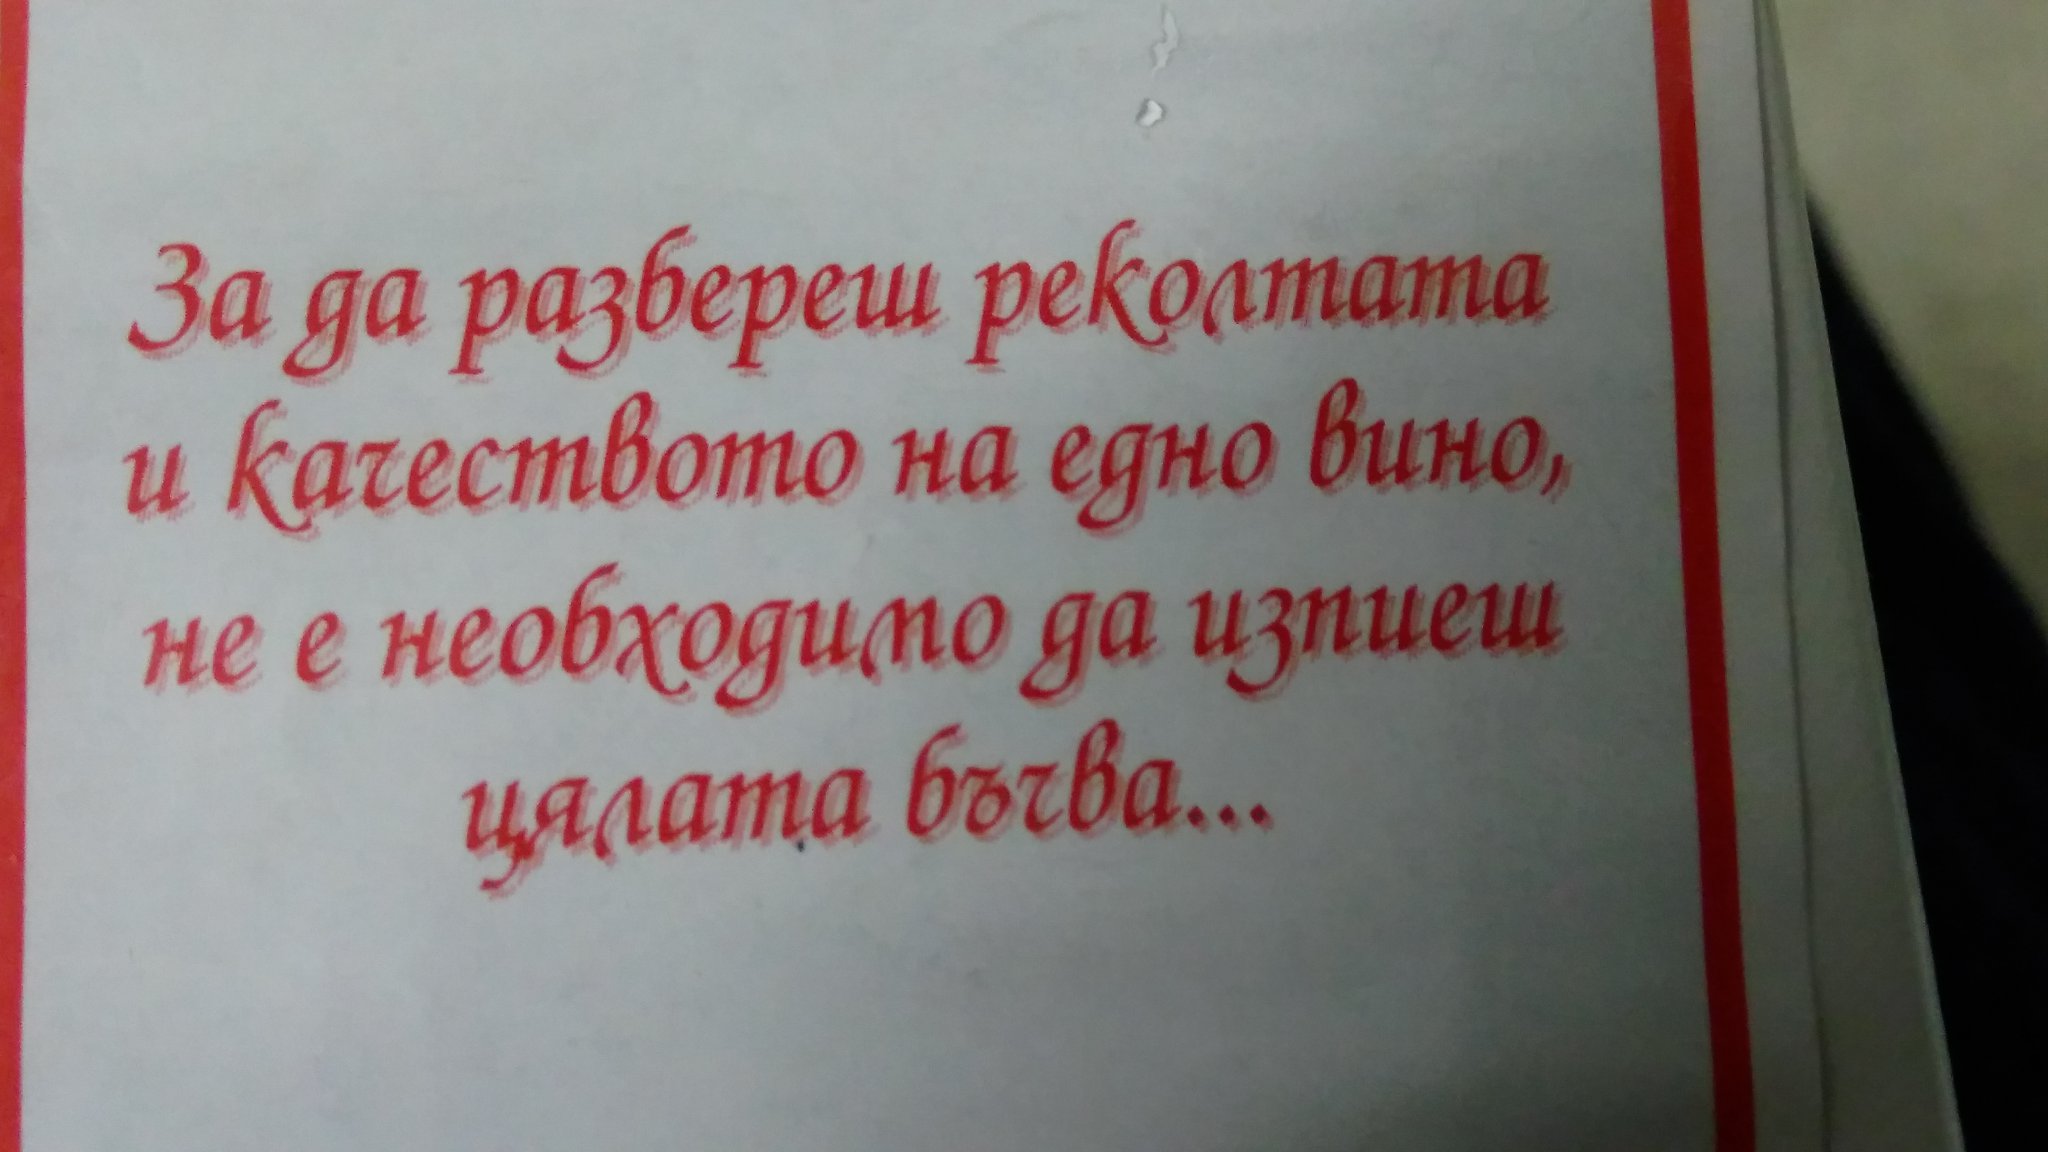 За да разбереш реколтата
и качеството на едно вино,
не е необходимо да изпиеш
цялата бъчва...